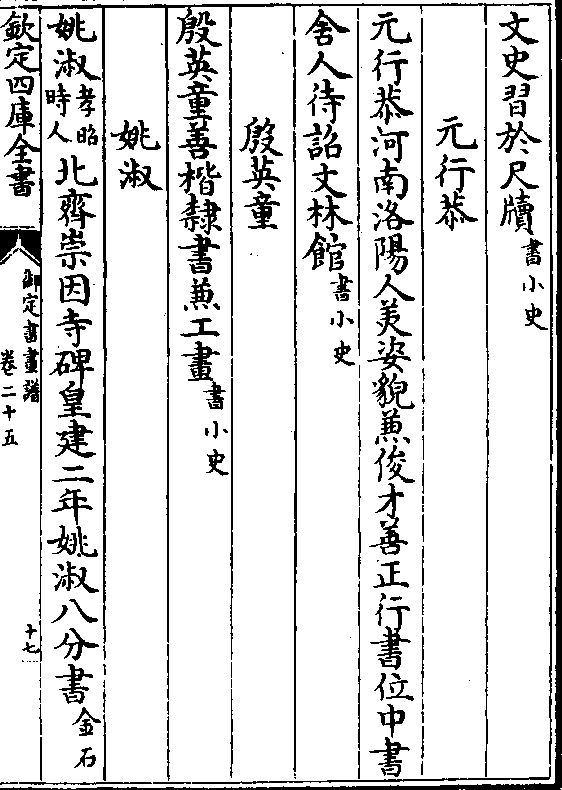 文史習於尺牘書小史
元行恭
元行恭河南洛陽人美姿貌兼俊才善正行書位中書
舍人待詔文林館書小史
殷英童
殷英童善楷隸書兼工畫書小史
姚淑
姚淑孝昭時人北齊崇因寺碑皇建二年姚淑八分書金石
欽定四庫全書
御定書畫譜
卷二十五
十七